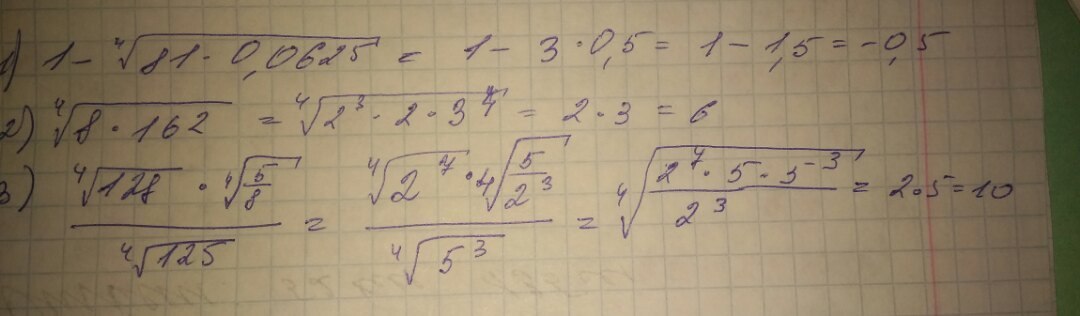 1) 1 - ⁴√(81 · 0,0625) = 1 - 3 · 0,5 = 1 - 1,5 = -0,5
2) ⁴√(8 · 162) = ⁴√(2³ · 2 · 3⁴) = 2 · 3 = 6
3) (⁴√128 · ⁴√(5/8)) / ⁴√125 = (⁴√(2⁷) · ⁴√(5/2³)) / ⁴√(5³) = ⁴√((2⁷ · 5 · 5⁻³) / 2³) = 2 · 5 = 10